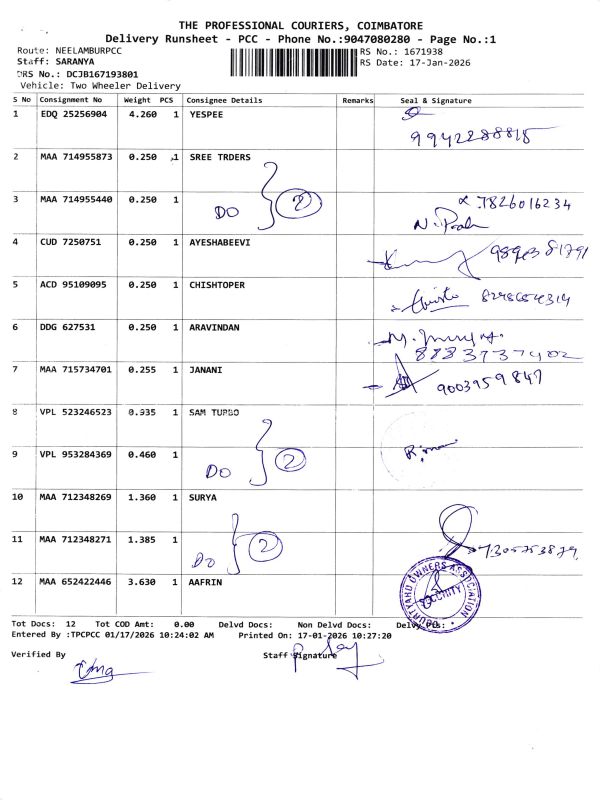 THE PROFESSIONAL COURIERS, COIMBATORE
Delivery Runsheet - PCC - Phone No.:9047080280 - Page No.:1
Route: NEELAMBURPCC
RS No.: 1671938
Staff: SARANYA
RS Date: 17-Jan-2026
DRS No.: DCJB167193801
Vehicle: Two Wheeler Delivery
S No Consignment No Weight PCS Consignee Details Remarks Seal & Signature
1 EDQ 25256904 4.260 1 YESPEE
9942288815
2 MAA 714955873 0.250 1 SREE TRDERS
3 MAA 714955440 0.250 1 DO 2 7826016234
4 CUD 7250751 0.250 1 AYESHABEEVI
5 ACD 95109095 0.250 1 CHISHTOPER
6 DDG 627531 0.250 1 ARAVINDAN
8883737402
7 MAA 715734701 0.255 1 JANANI
9003959847
8 VPL 523246523 0.935 1 SAM TURBO
9 VPL 953284369 0.460 1 DO 2
10 MAA 712348269 1.360 1 SURYA
11 MAA 712348271 1.385 1 DO 2
7305753879
12 MAA 652422446 3.630 1 AAFRIN COURTYARD OWNERS ASSOCIATION SECURITY
Tot Docs: 12 Tot COD Amt: 0.00 Delvd Docs: Non Delvd Docs: Delvy Pls:
Entered By :TPCPCC 01/17/2026 10:24:02 AM Printed On: 17-01-2026 10:27:20
Verified By Staff Signature
Uma